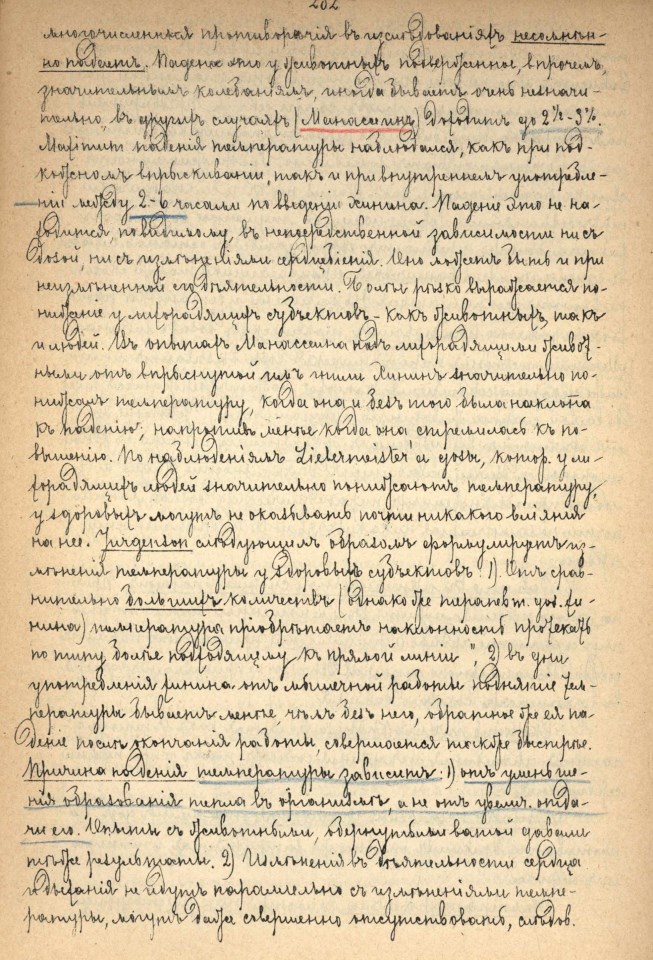 202
многочисленныя противорѣчія въ изслѣдованіяхъ несомнѣн-
но падаетъ. Паденіе это у животныхъ подверженное, впрочемъ,
значительнымъ колебаніямъ, иногда бываетъ очень незначи-
тельно, въ другихъ случаяхъ (Манассеинъ) доходитъ до 2½-3%.
Maximum паденія температуры наблюдался, какъ при под-
кожномъ впрыскиваніи, такъ и при внутреннемъ употребле-
ніи между 2-6 часами по введеніи хинина. Паденіе это не на-
ходится, повидимому, въ непосредственной зависимости ни съ
дозой, ни съ измѣненіями сердцебіенія. Оно можетъ быть и при
неизмѣненной его дѣятельности. Болѣе рѣзко выражается по-
ниженіе у лихорадящихъ субъектовъ - какъ животныхъ, такъ
и людей. Въ опытахъ Манассеина надъ лихорадящими живот-
ными отъ впрыснутой имъ гнили Хининъ значительно по-
нижалъ температуру, когда она и безъ того была наклонна
къ паденію; напротивъ менѣе когда она стремилась къ по-
вышенію. По наблюденіямъ Liebermeister'a дозы, котор. у ли-
хорадящихъ людей значительно понижаютъ температуру,
у здоровыхъ могутъ не оказывать почти никакого вліянія
на нее. Jurgenson слѣдующимъ образомъ формулируетъ из-
мѣненія температуры у здоровыхъ субъектовъ: 1) „Отъ срав-
нительно большихъ количествъ (однако же терапевт. доз. хи-
нина) температура пріобрѣтаетъ наклонность протекать
по типу болѣе подходящему къ прямой линіи", 2) въ дни
употребленія хинина отъ мышечной работы поднятіе тем-
пературы бываетъ менѣе, чѣмъ безъ него, обратное же ея па-
деніе послѣ окончанія работы, совершается также быстрѣе.
Причина паденія температуры зависитъ: 1) отъ уменьше-
нія образованія тепла въ организмѣ, а не отъ увелич. отда-
чи его. Опыты съ животными, обернутыми ватой давали
тѣже результаты. 2) Измѣненія въ дѣятельности сердца
и дыханія не идутъ параллельно съ измѣненіями темпе-
ратуры, могутъ даже совершенно отсутствовать, слѣдов.